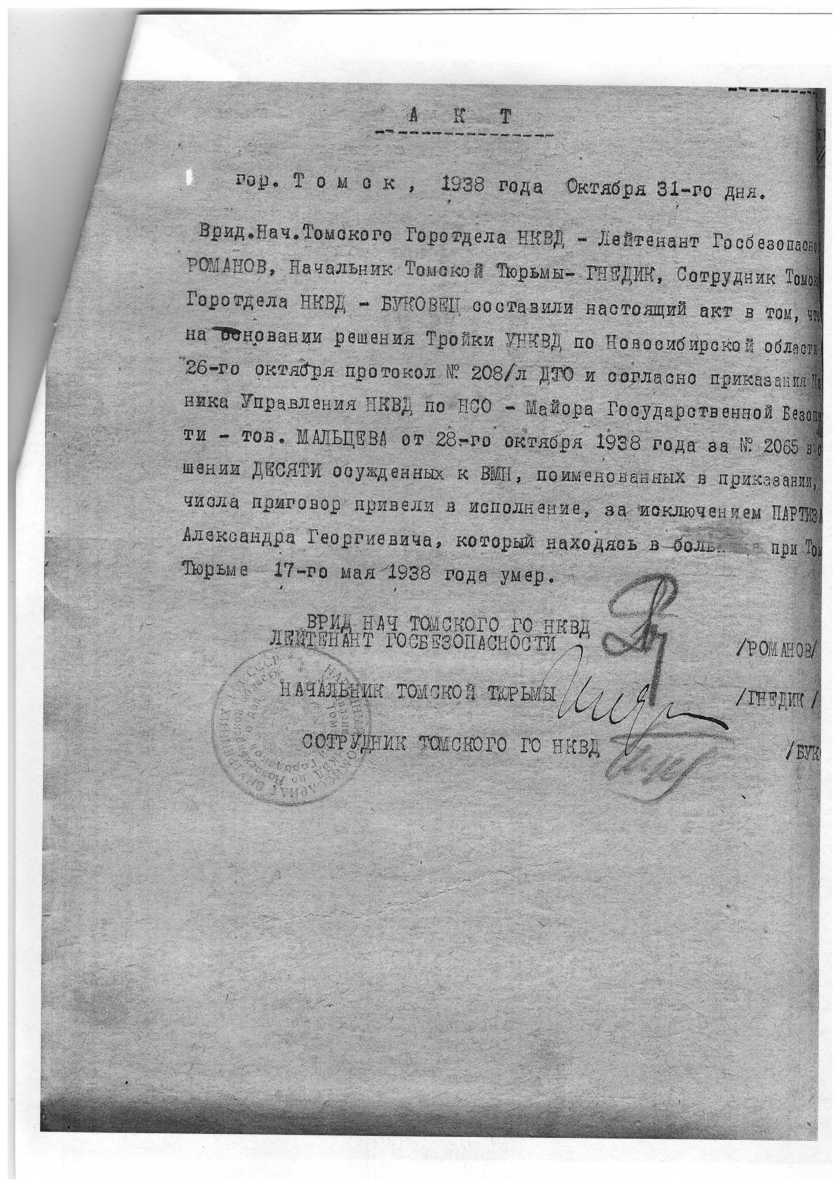 А К Т
гор. Томск, 1938 года Октября 31-го дня.
Врид.Нач.Томского Горотдела НКВД - Лейтенант Госбезопасно
РОМАНОВ, Начальник Томской Тюрьмы- ГНЕДИК, Сотрудник Томск
Горотдела НКВД - БУКОВЕЦ составили настоящий акт в том, что
на основании решения Тройки УНКВД по Новосибирской области
26-го октября протокол № 208/л ДТО и согласно приказания
ника Управления НКВД по НСО - Майора Государственной Безоп
ти - тов. МАЛЬЦЕВА от 28-го октября 1938 года за № 2065 в
шении ДЕСЯТИ осужденных к ВМН, поименованных в приказании,
числа приговор привели в исполнение, за исключением ПАРТИЗА
Александра Георгиевича, который находясь в при Том
Тюрьме 17-го мая 1938 года умер.
ВРИД НАЧ ТОМСКОГО ГО НКВД
ЛЕЙТЕНАНТ ГОСБЕЗОПАСНОСТИ /РОМАНОВ/
НАЧАЛЬНИК ТОМСКОЙ ТЮРЬМЫ /ГНЕДИК/
СОТРУДНИК ТОМСКОГО ГО НКВД /БУК